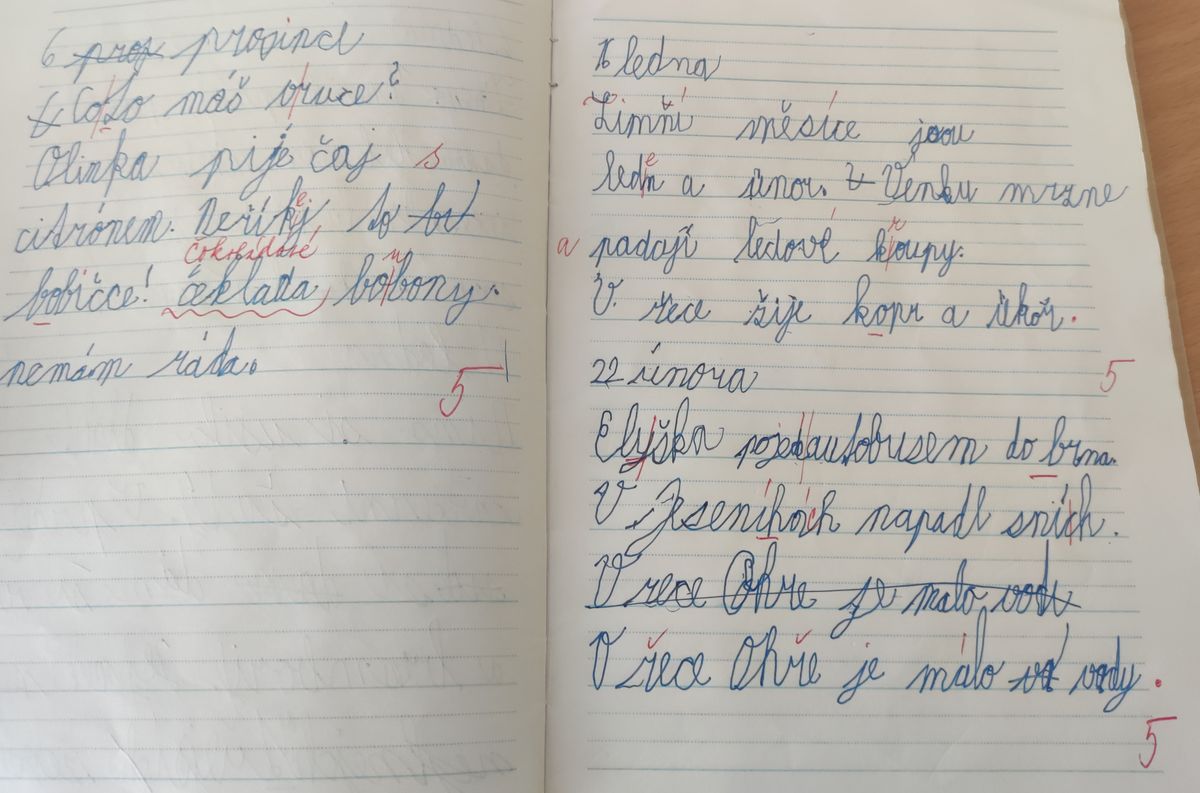 6 proj projincl
Co to máš vruce?
Olinka pijé čaj s
citrónem. Neříkj to tot
čokoládové
bobičce! čeklada, bobony.
nemám ráda.
5
16 ledna
Zimňí měsíce jsou
ledn a únor. Venku mrzne
a padají ledové koupy.
V. řece žije kopr a úhoř.
22 února 5
Elyška pojedautobusem do brna.
V Jeseníhóch napadl sních.
V rece Ohře je malo vody
V řece Ohře je málo vody.
5